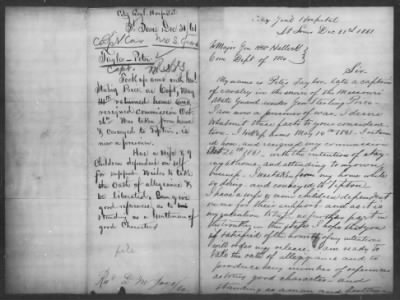 City Genl. Hospital
St Louis Dec 31/61
Taylor Peter
Capt.
Took up arms with Genl
Sterling Price as Capt, May
14th returned home and
resigned commission Oct
21st Was taken from home
& conveyed to Tipton, is
now a prisoner.
Has a wife & 9
Children dependent on self
for support. Wishes to take
the Oath of allegiance &
be liberated, Can give
good references, as to
standing as a Gentleman of
good Character
file
City Genl Hospital
St Louis Dec 31st 1861
To Major Gen HW Halleck
Com Dept of Mo
Sir
My name is Peter Taylor, late a captain
of cavalry in the service of the Missouri
State Guard under Gen Sterling Price
I am now a prisoner of war. I desire
to submit a few facts to your considera-
tion. I left my home May 14th 1861. I return-
ed home and resigned my commission
Oct 21st 1861. with the intention of stay-
ing at home and attending to my own
business. I was taken from my home while
so doing and conveyed to Tipton
I have a wife & nine children dependent
on me for their support and as it is
my intention to take no further part in
the
satisfied of the honesty of my intentions
my release. I am ready to
take the oath of allegiance and to
produce any number of references
as to my good character and
standing as a man and